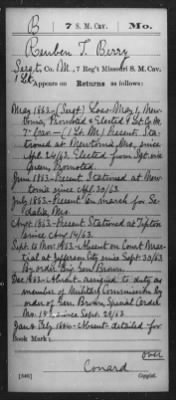 B 7 S. M. Cav. Mo.
Reuben T. Berry
Sergt, Co. M., 7 Reg't Missouri S. M. Cav.
1 Lt.
Appears on Returns as follows:
May 1863 - (Sergt) Loss May 1, New-
tonia, Promoted & Elected 1 Lt. Co M.
7" Cav. - (1 Lt. M) Present Sta-
tioned at Newtonia, Mo, since
Apl. 24/63. Elected from Sgt. vice
Green, Promoted.
June 1863 - Present Stationed at New-
tonia since Apl. 30/63.
July 1863 - Present on march for Se-
dalia, Mo.
Augt. 1863 - Present Stationed at Tipton
since Aug. 14/63.
Sept. to Nov. 1863 - Absent on Court Mar-
tial at Jefferson City since Sept. 20/63
By order Brig Gen. Brown.
Dec. 1863 - Absent. assigned to duty as
member of Military Commission by
order of Gen. Brown, Special Order
No. since Sept. 20/63
Jan. & Feby 1864 - Absent - detailed for
Book Mark:
over
Conard
(546) Copyist.